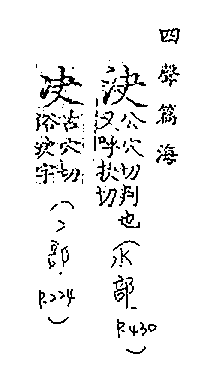 四聲篇海
決公穴切判也(水部.P.430)
又呼抉切
决古穴切(冫部.P.224)
俗決字